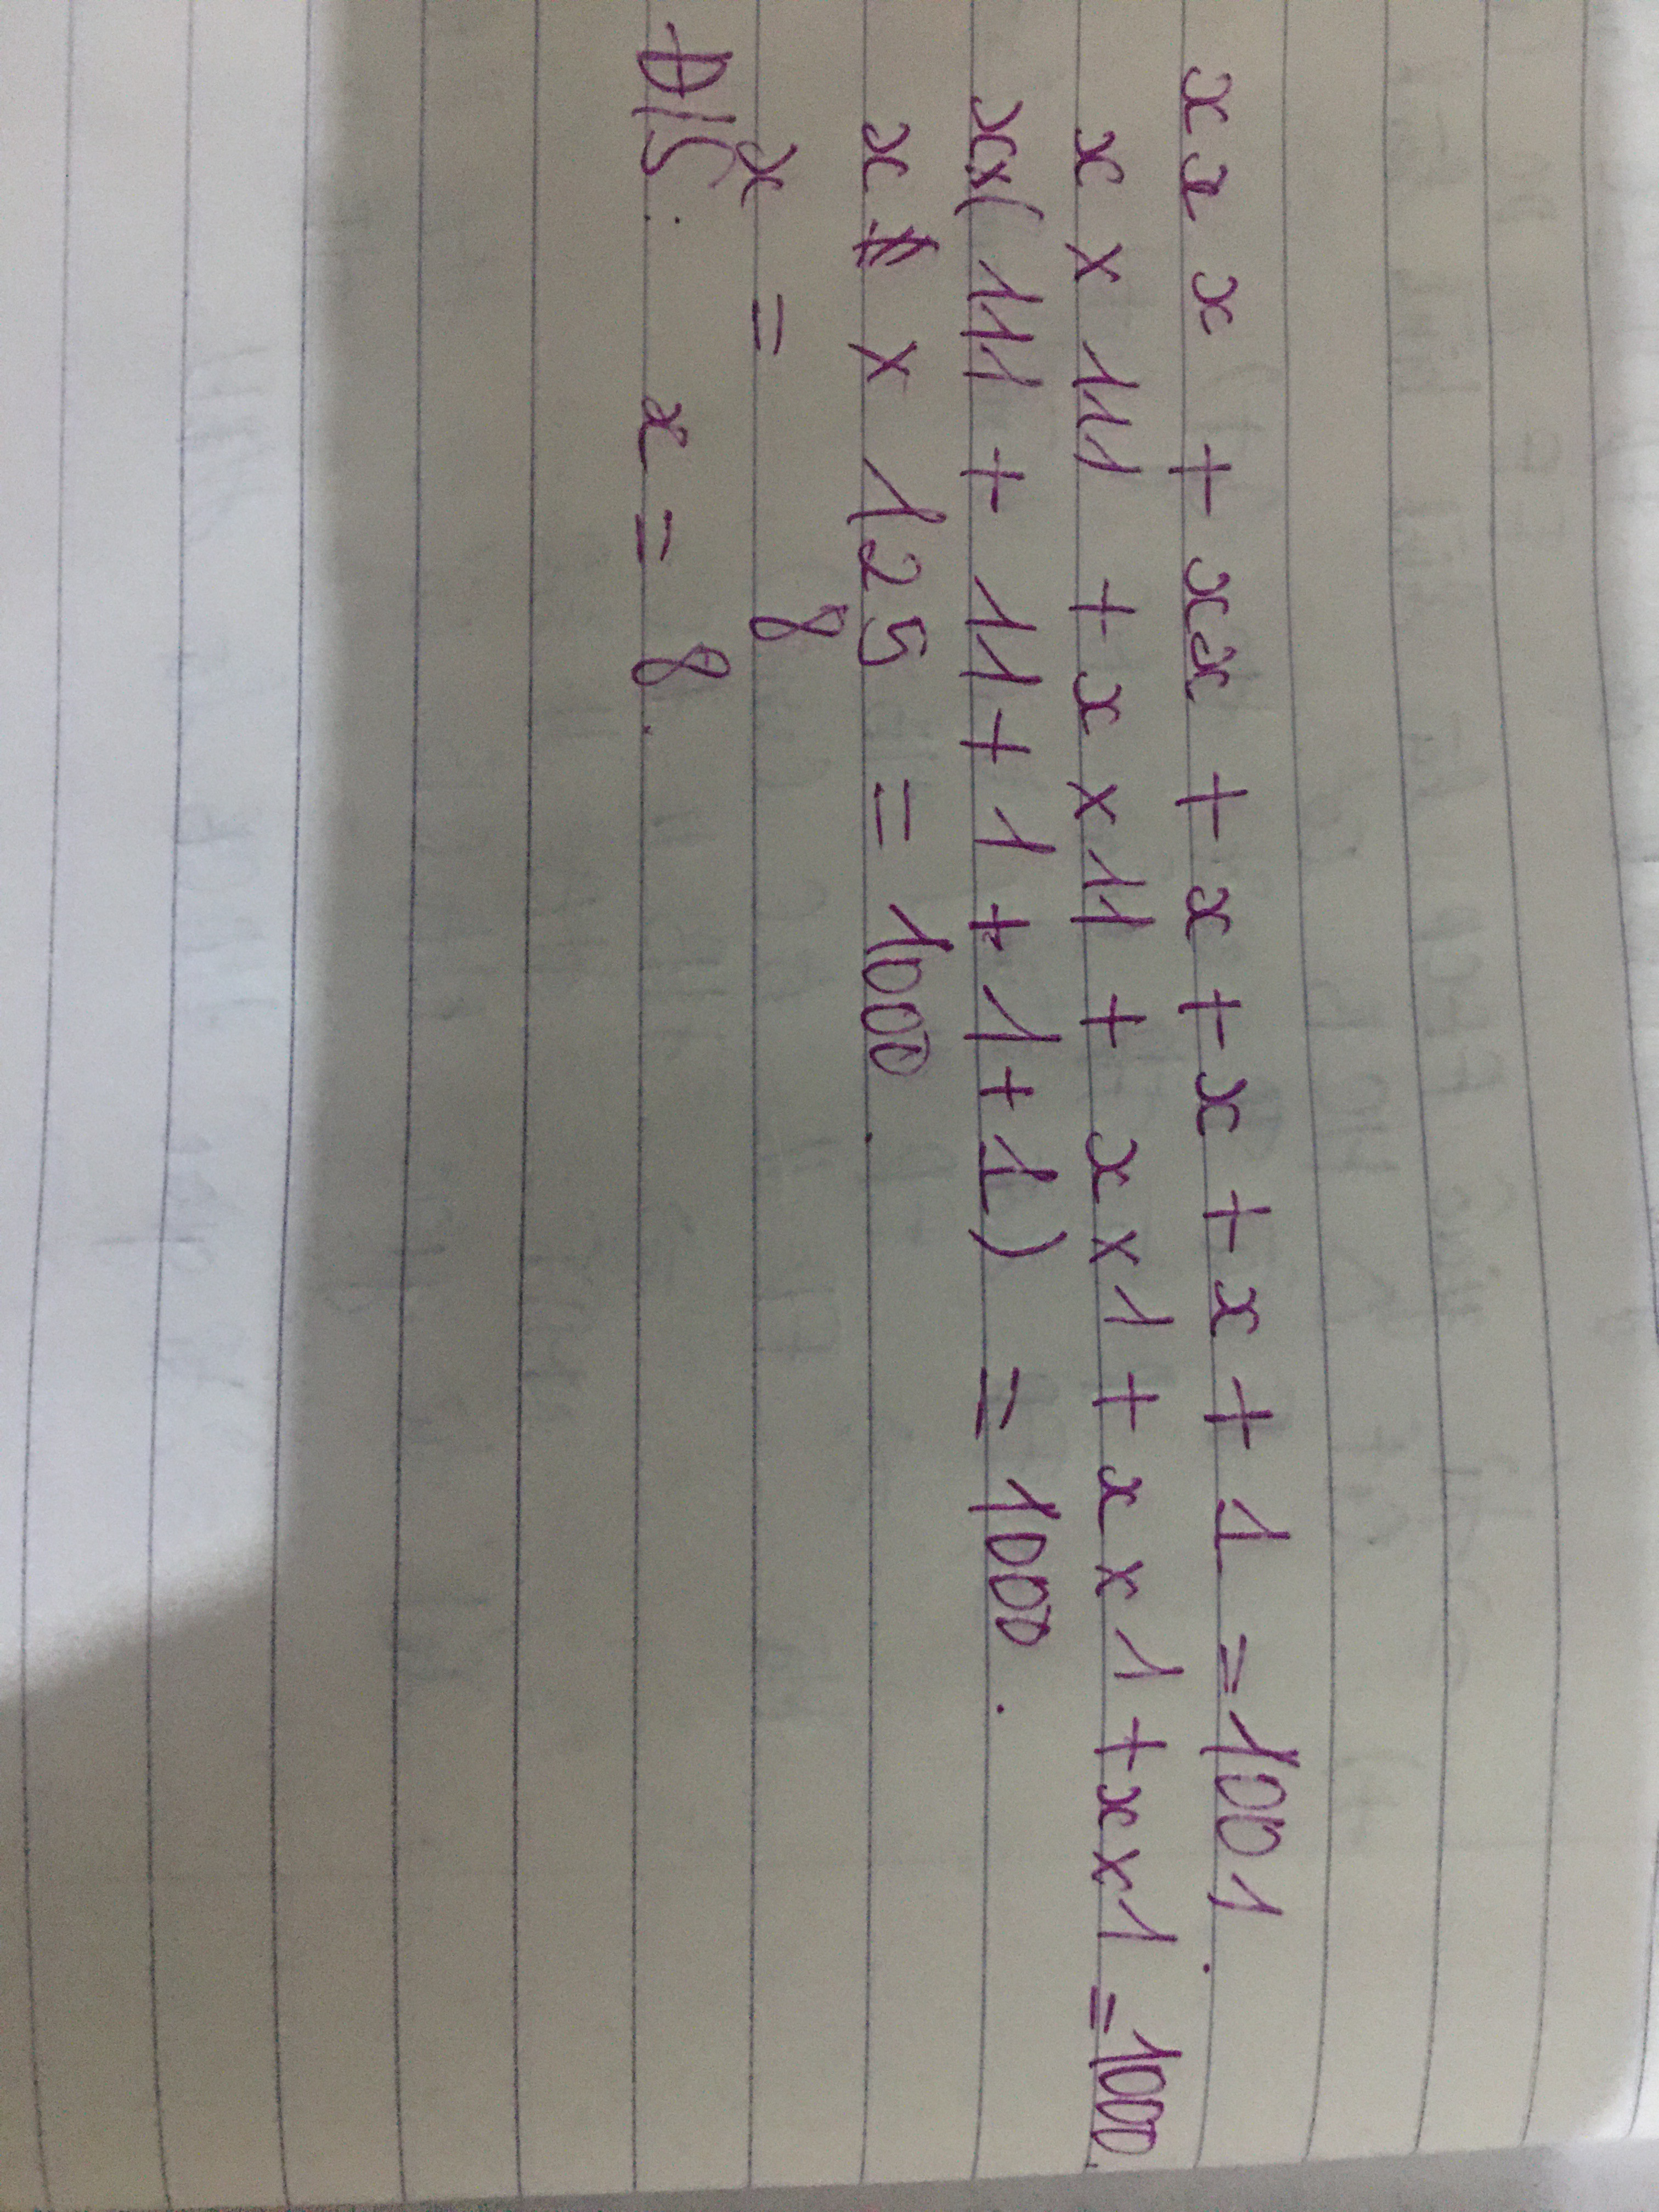 xxx + xx + x + x + x + 1 = 1001.
x × 111 + x × 11 + x × 1 + x × 1 + x × 1 = 1000.
x × ( 111 + 11 + 1 + 1 + 1 ) = 1000.
x × 125 = 1000.
x = 8
Đ/S: x = 8.